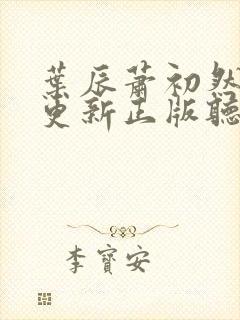 葉辰蕭初然
更新正版聽
李寶安